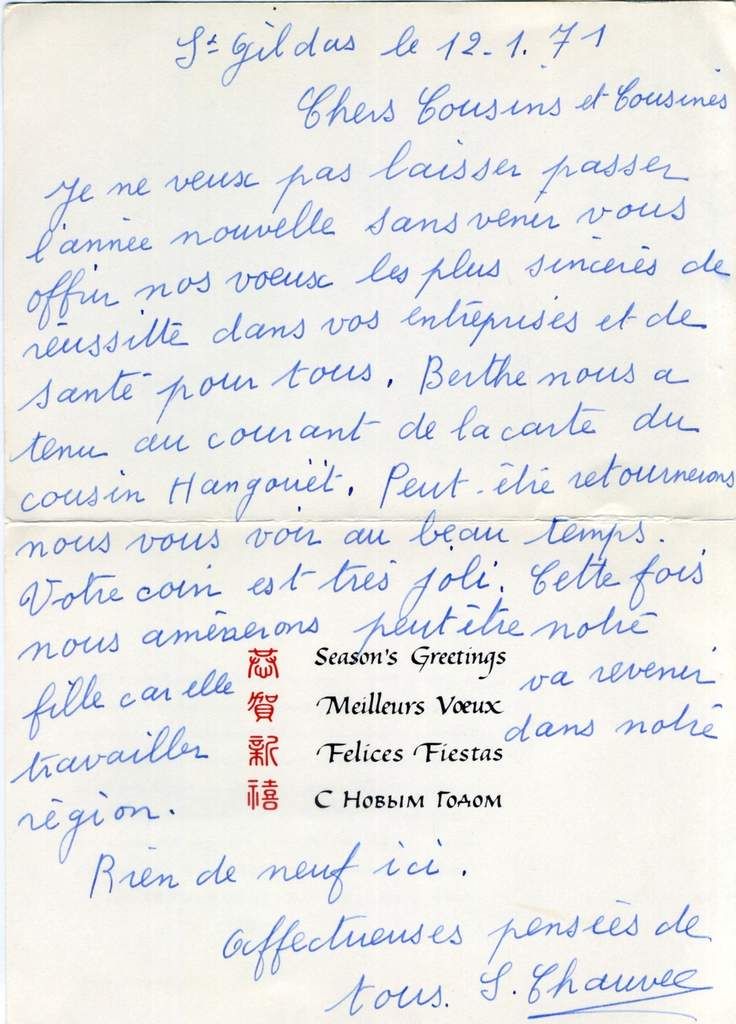 St Gildas le 12.1.71
Chers Cousins et Cousines
Je ne veux pas laisser passer
l'année nouvelle sans venir vous
offrir nos voeux les plus sincères de
réussitte dans vos entreprises et de
santé pour tous. Berthe nous a
tenu au courant de la carte du
cousin Hangouët. Peut-être retournerons
nous vous voir au beau temps.
Votre coin est très joli. Cette fois
nous amènerons peut être notre
fille car elle va revenir
travailler dans notre
région.
恭賀新禧
Season's Greetings
Meilleurs Vœux
Felices Fiestas
С Новым Годом
Rien de neuf ici.
Affectueuses pensées de
tous. S. Chauvel